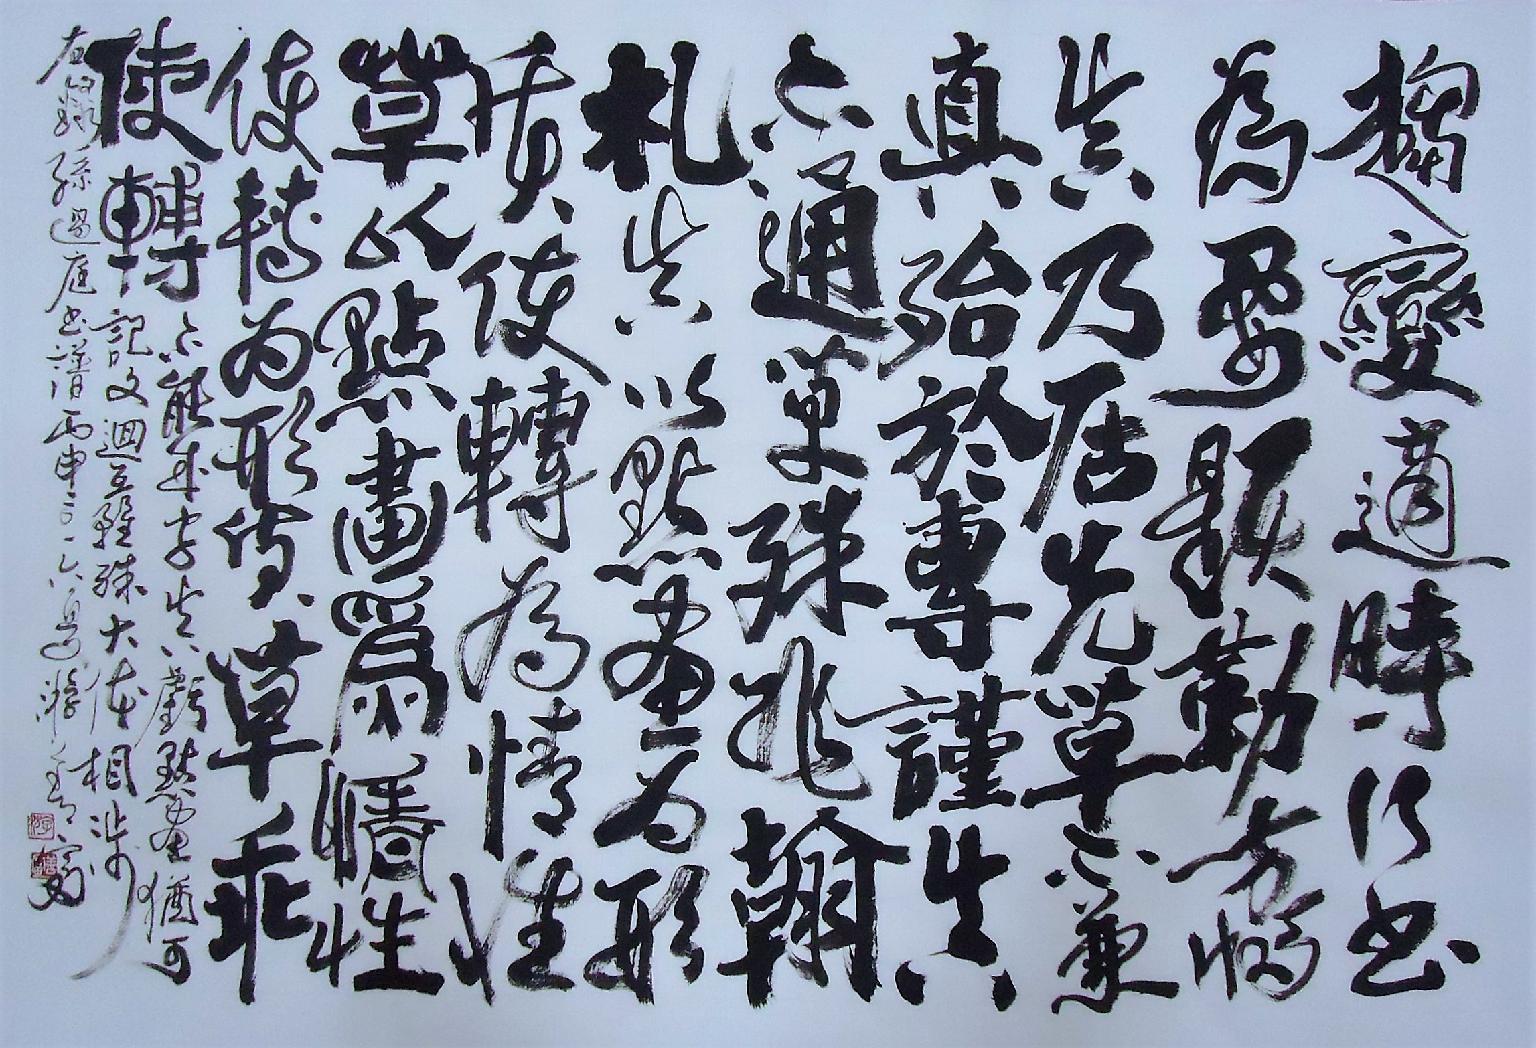 趨變適時行書
為要題勒方幅
真乃居先草不兼
真殆於專謹真
不通草殊非翰
札真以點畫为形
質使轉為情性
草以點畫爲情性
使轉为形質草乖
使轉
不能成字真虧點畫猶可
記文迴互雖殊大體相涉
右節録孫過庭書譜丙申